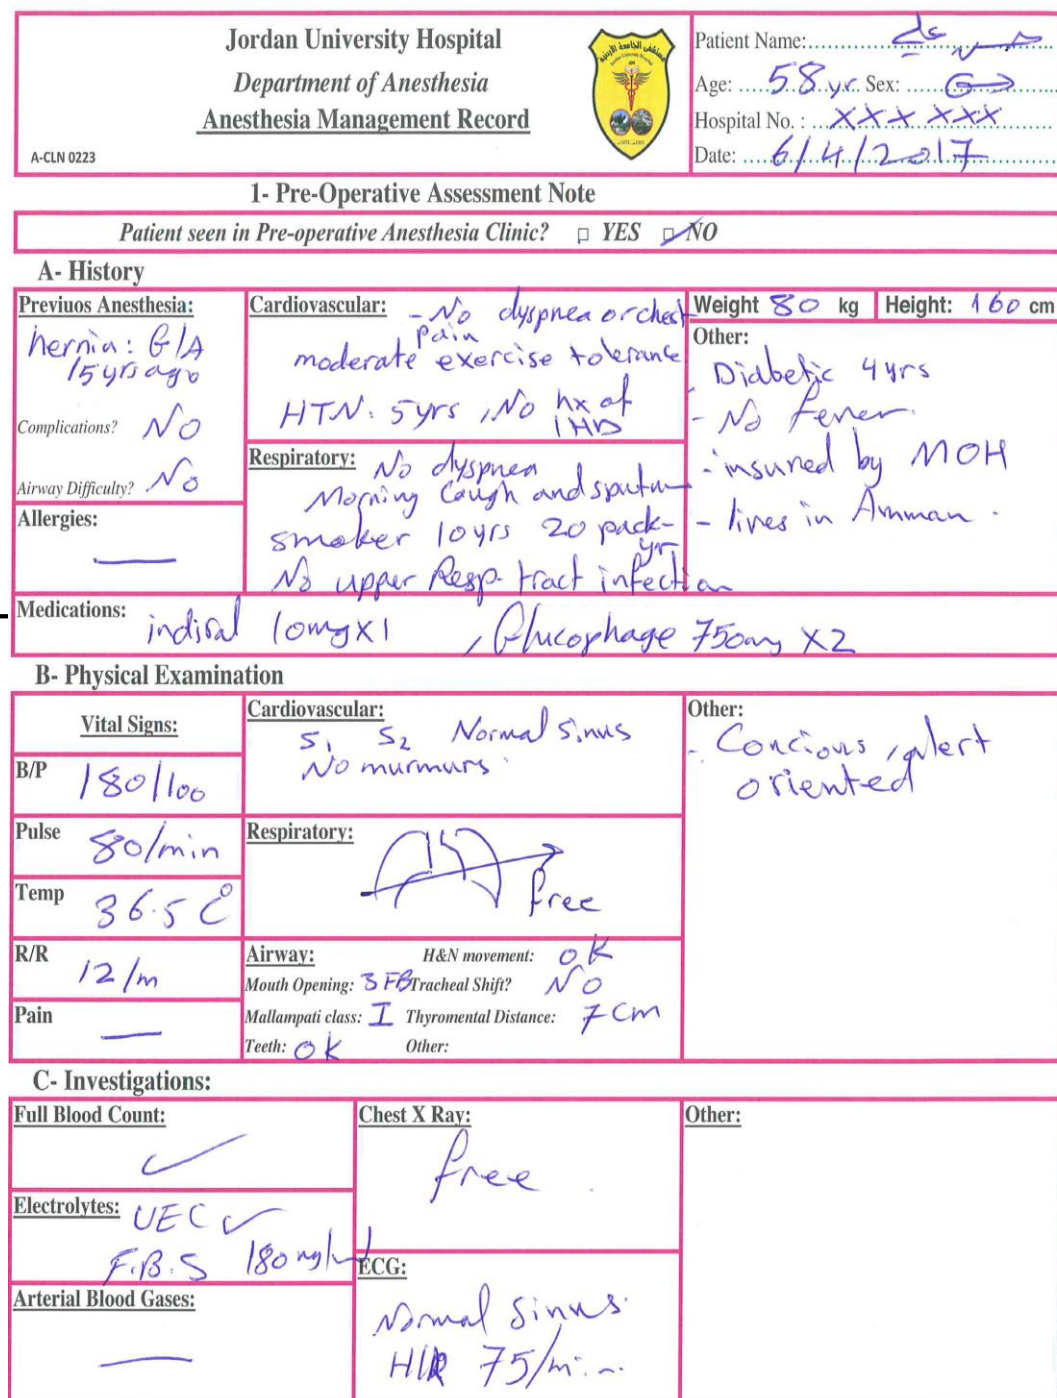 Jordan University Hospital
Department of Anesthesia
Anesthesia Management Record
A-CLN 0223
مستشفى الجامعة الأردنية
Patient Name: علي
Age: 58 yr. Sex:
Hospital No. : XXX XXX
Date: 6/4/2017
1- Pre-Operative Assessment Note
Patient seen in Pre-operative Anesthesia Clinic? YES NO
A- History
Previuos Anesthesia:
hernia: G/A
15 yrs ago
Complications? No
Airway Difficulty? No
Allergies:
Cardiovascular: - No dyspnea or chest
pain
moderate exercise tolerance
HTN: 5yrs , No hx of
IHD
Respiratory: No dyspnea
Morning Cough and sputum
smoker 10 yrs 20 pack-
yr
No upper Resp. tract infection
Weight 80 kg Height: 160 cm
Other:
- Diabetic 4 yrs
- No fever.
- insured by MOH
- lives in Amman.
Medications: indiral 10mg X1 , Glucophage 750mg X2
B- Physical Examination
Vital Signs:
B/P 180/100
Pulse 80/min
Temp 36.5 C°
R/R 12/m
Pain
Cardiovascular:
S1 S2 Normal sinus
No murmurs.
Respiratory:
free
Airway: H&N movement: OK
Mouth Opening: 3 FB Tracheal Shift? NO
Mallampati class: I Thyromental Distance: 7 Cm
Teeth: ok Other:
Other:
- Concious, alert
oriented
C- Investigations:
Full Blood Count:
✓
Electrolytes: UEC ✓
F.B.S 180
Arterial Blood Gases:
Chest X Ray:
free.
ECG:
Normal Sinus.
HR 75/min
Other: